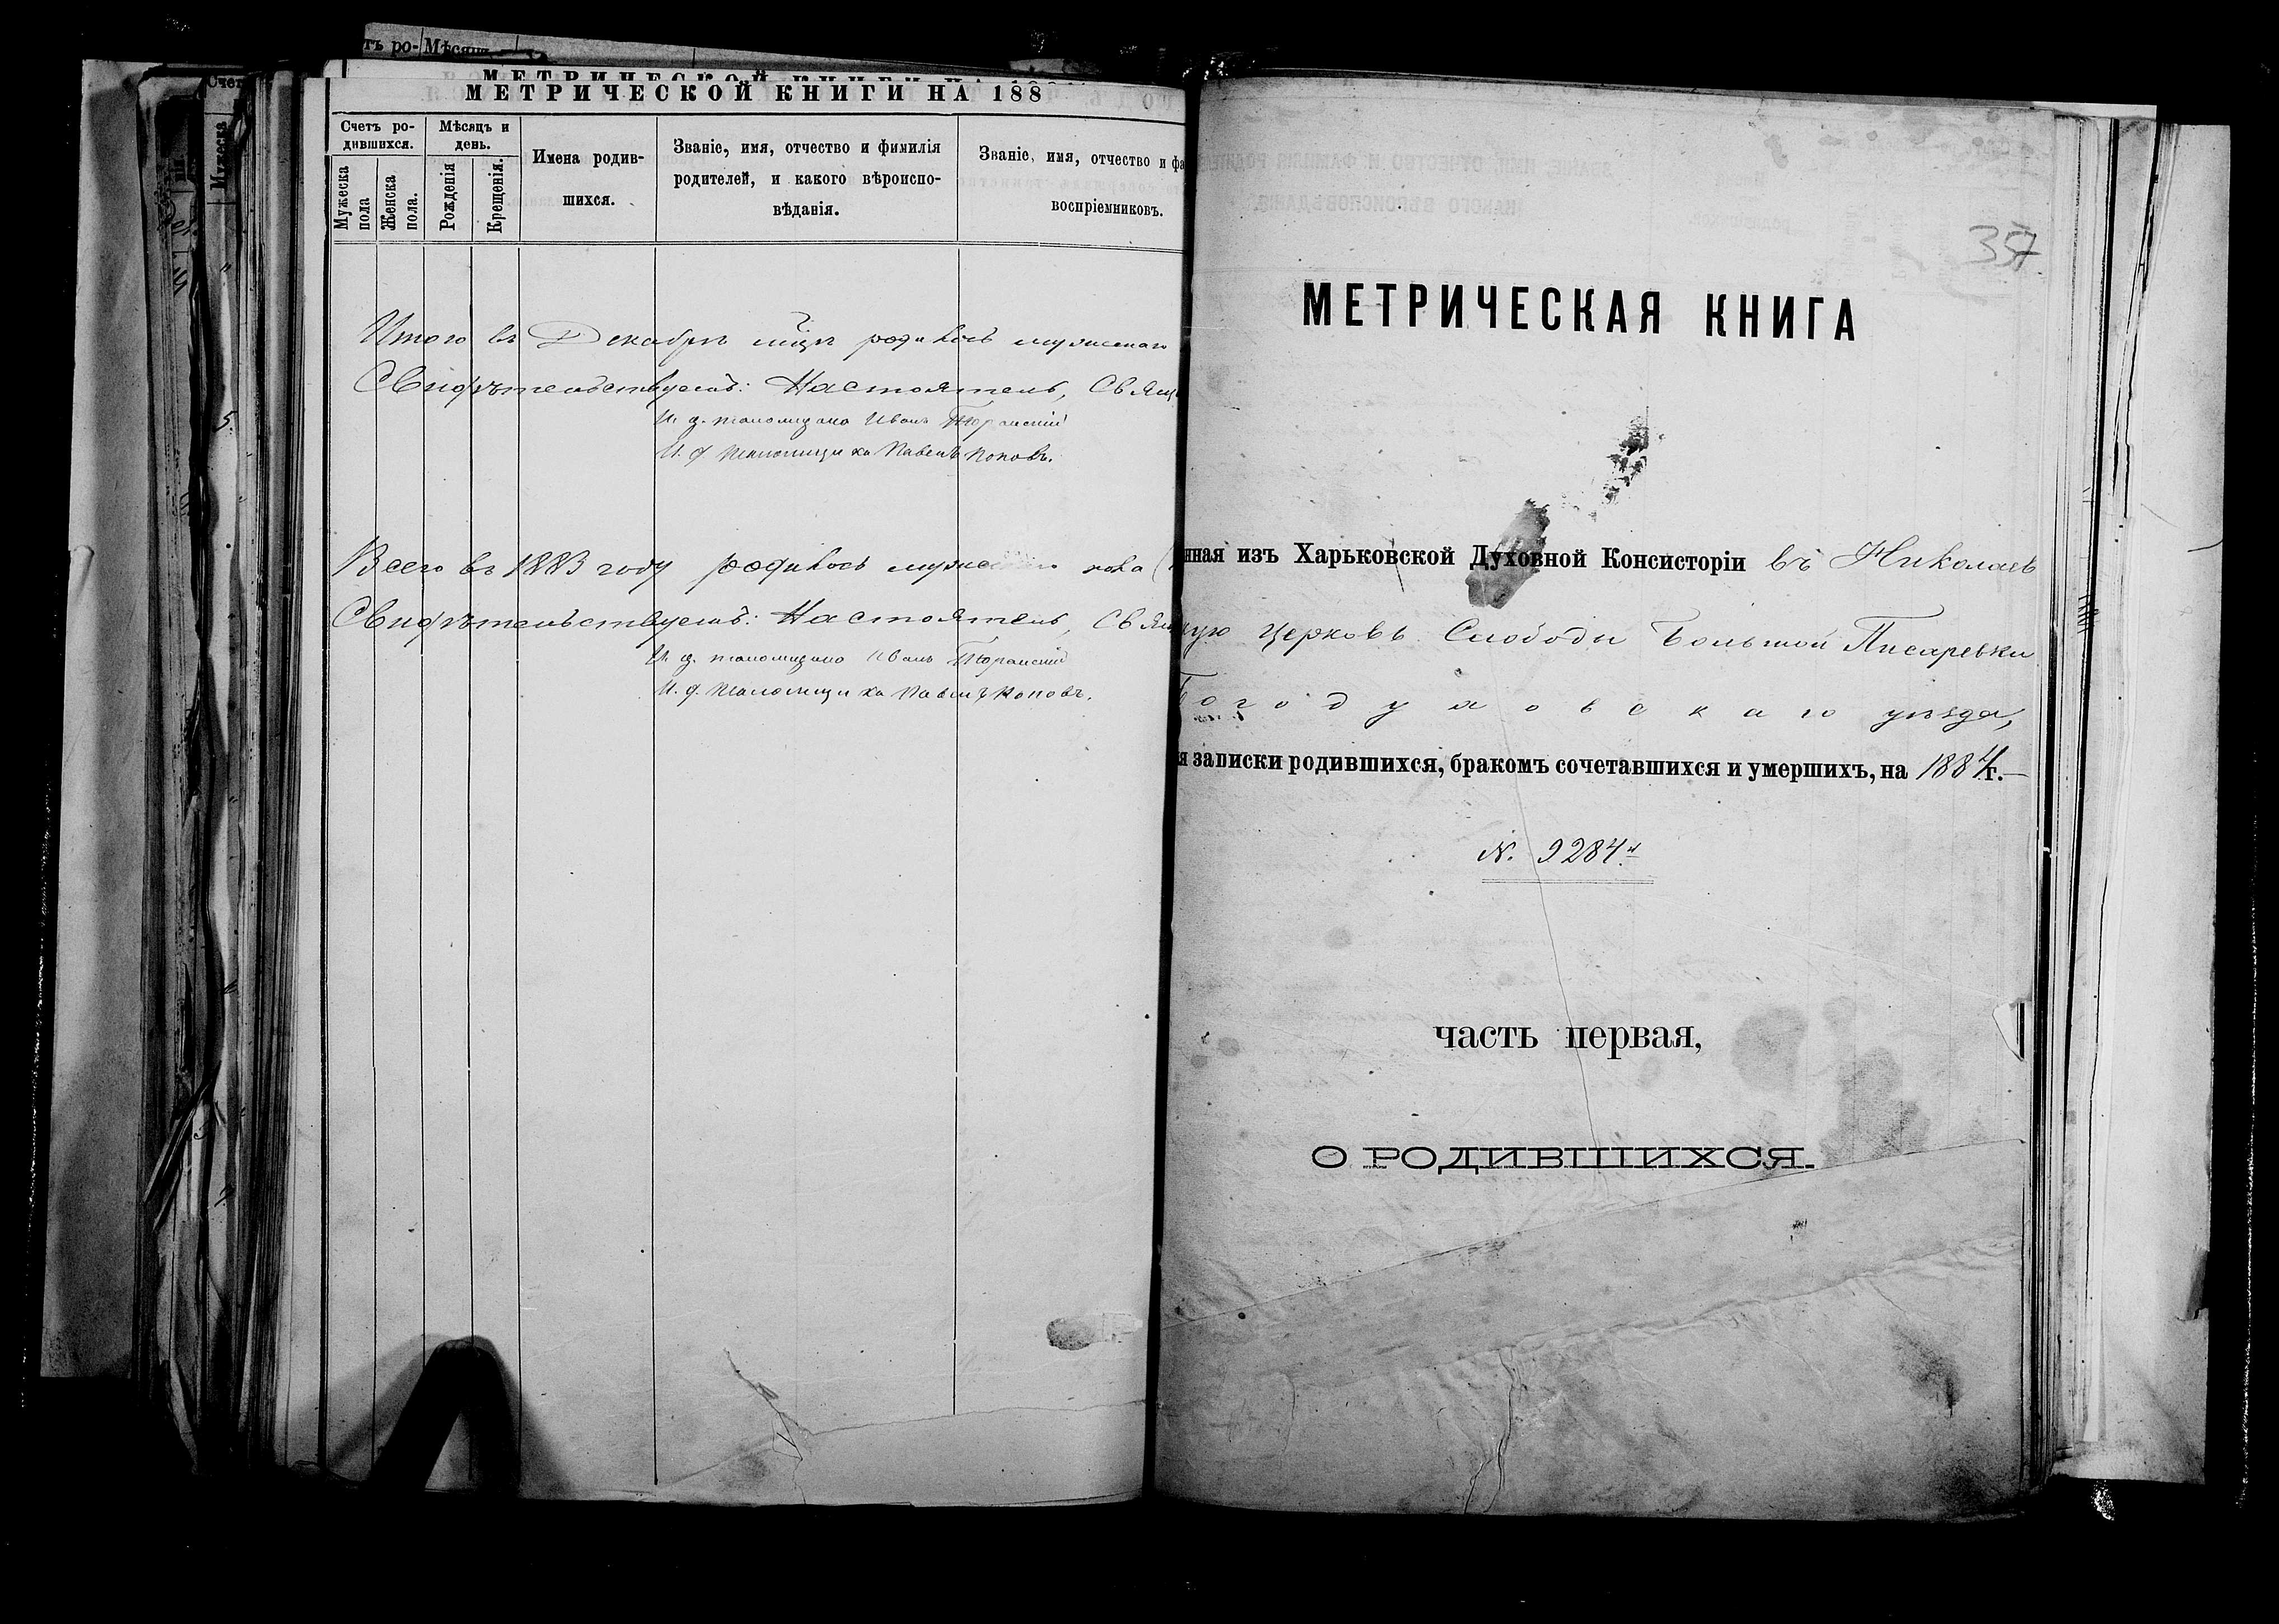 тъ ро- Мѣсяцъ
МЕТРИЧЕСКОЙ КНИГИ НА 188
Счетъ ро-
дившихся.
Мѣсяцъ и
день.
Мужеска
пола
Женска
пола.
Рожденія
Крещенія.
Имена родив-
шихся.
Званіе, имя, отчество и фимилія
родителей, и какого вѣроиспо-
вѣданія.
Званіе, имя, отчество и фа
воспріемниковъ.
Итого въ Декабрѣ мцѣ родилось мужескаго
Свидѣтельствуемъ: Настоятель, Свящ
И. д. псаломщика Иванъ
И. д. псаломщика Павелъ Поповъ.
Всего въ 1883 году родилось мужес пола
Свидѣтельствуемъ: Настоятель, Свящ
И. д. псаломщика Иванъ
И. д. псаломщика Павелъ Поповъ.
357
МЕТРИЧЕСКАЯ КНИГА
нная изъ Харьковской Духовной Консисторіи въ Николаев
кую церковь Слободы Большой Писаревки
Богодуховскаго уѣзда,
я записки родившихся, бракомъ сочетавшихся и умершихъ, на 1884 г.
№. 9284.
часть первая,
О РОДИВШИХСЯ.